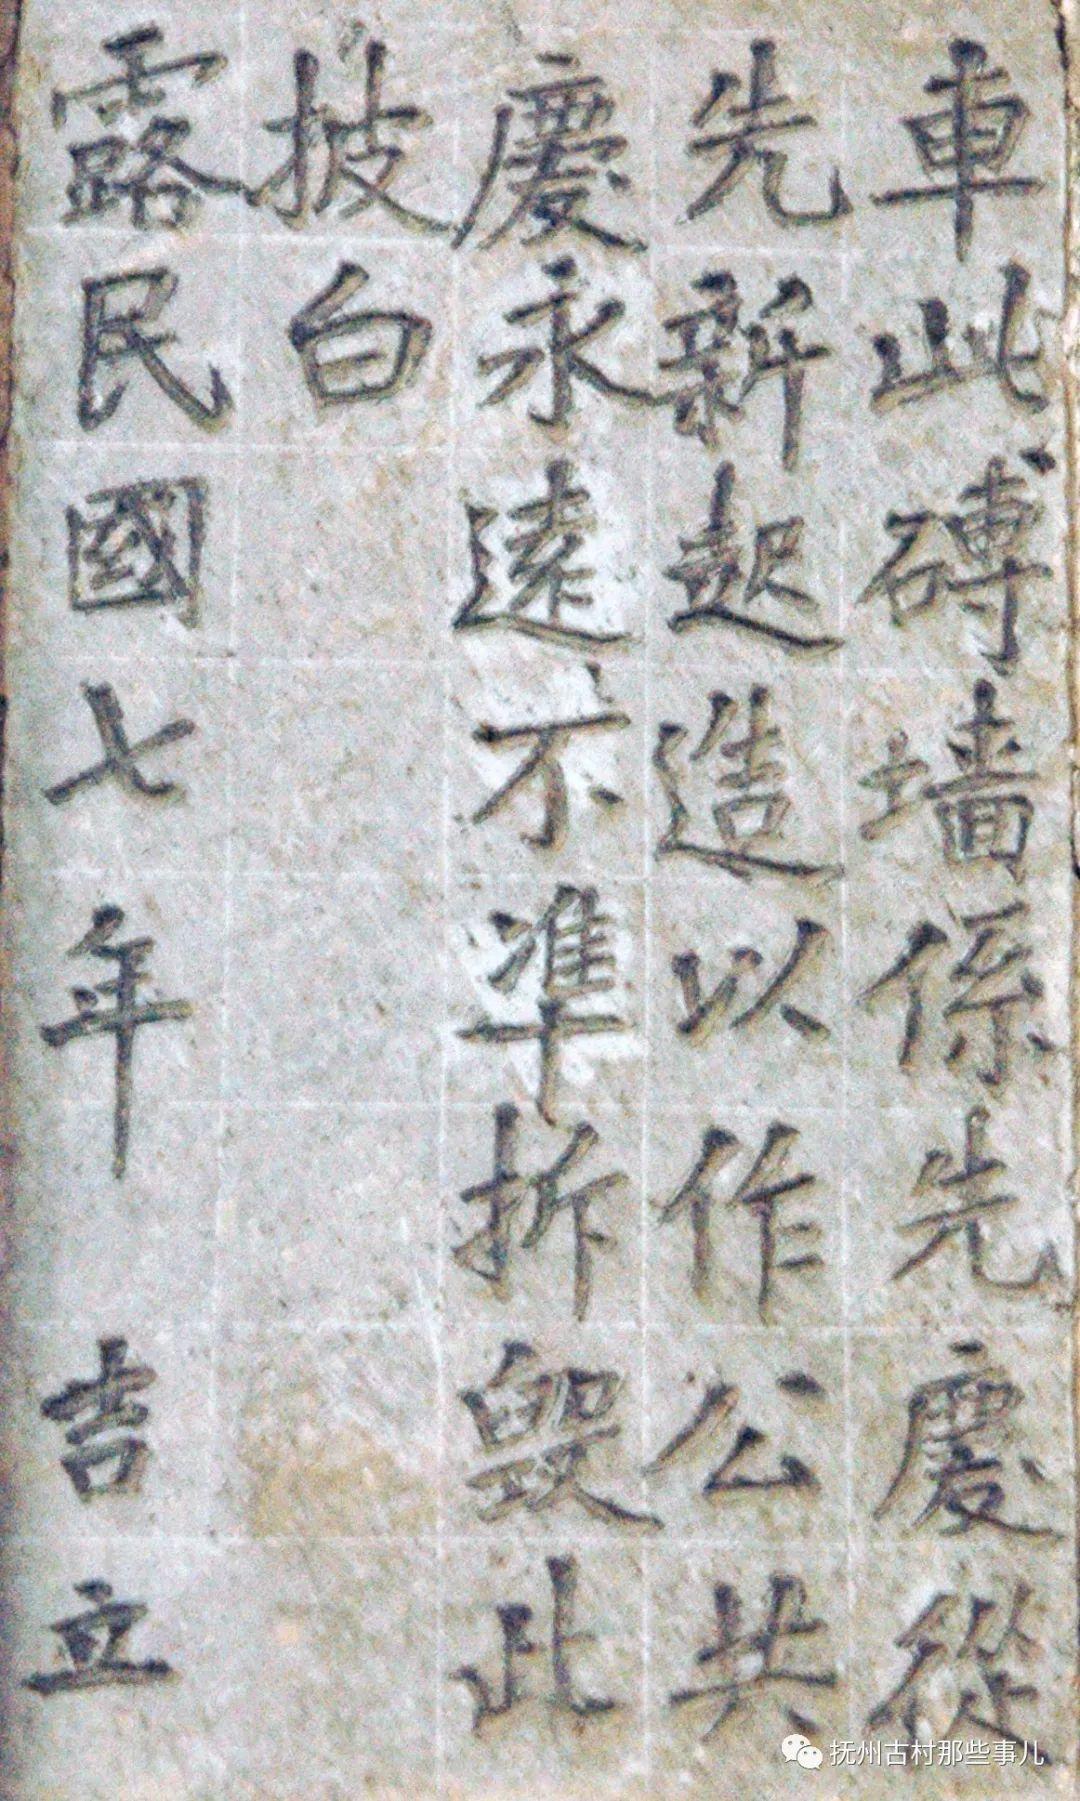 車此磚墻係先慶從
先新起造以作公共
慶永遠不準拆毁此
披白
露民國七年 吉立
抚州古村那些事儿